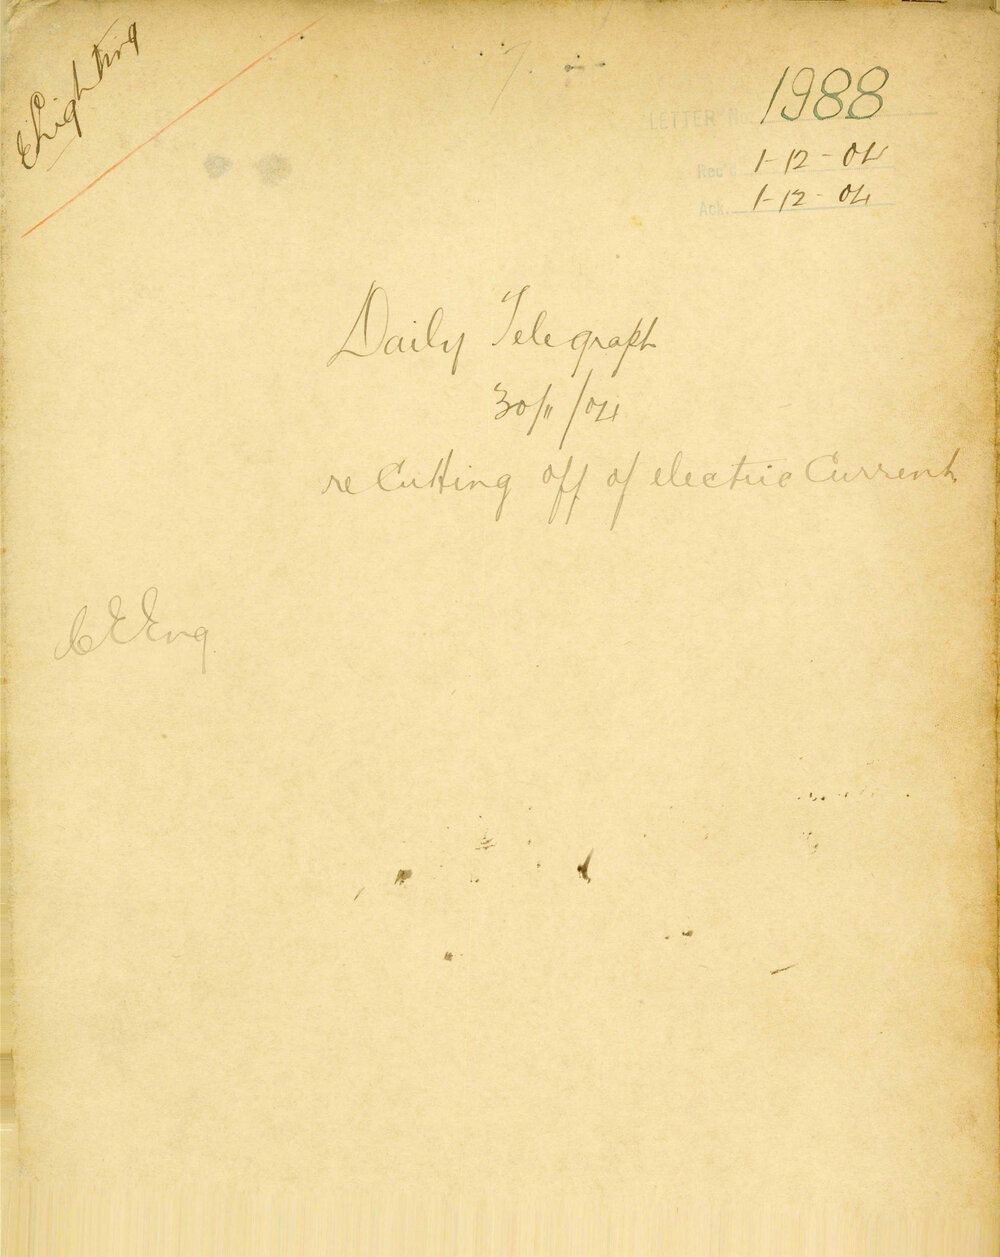 E Lighting
LETTER No. 1988
Rec'd 1-12-04
Ack. 1-12-04
Daily Telegraph
30/11/04
re Cutting off of electric Current
C E Eng